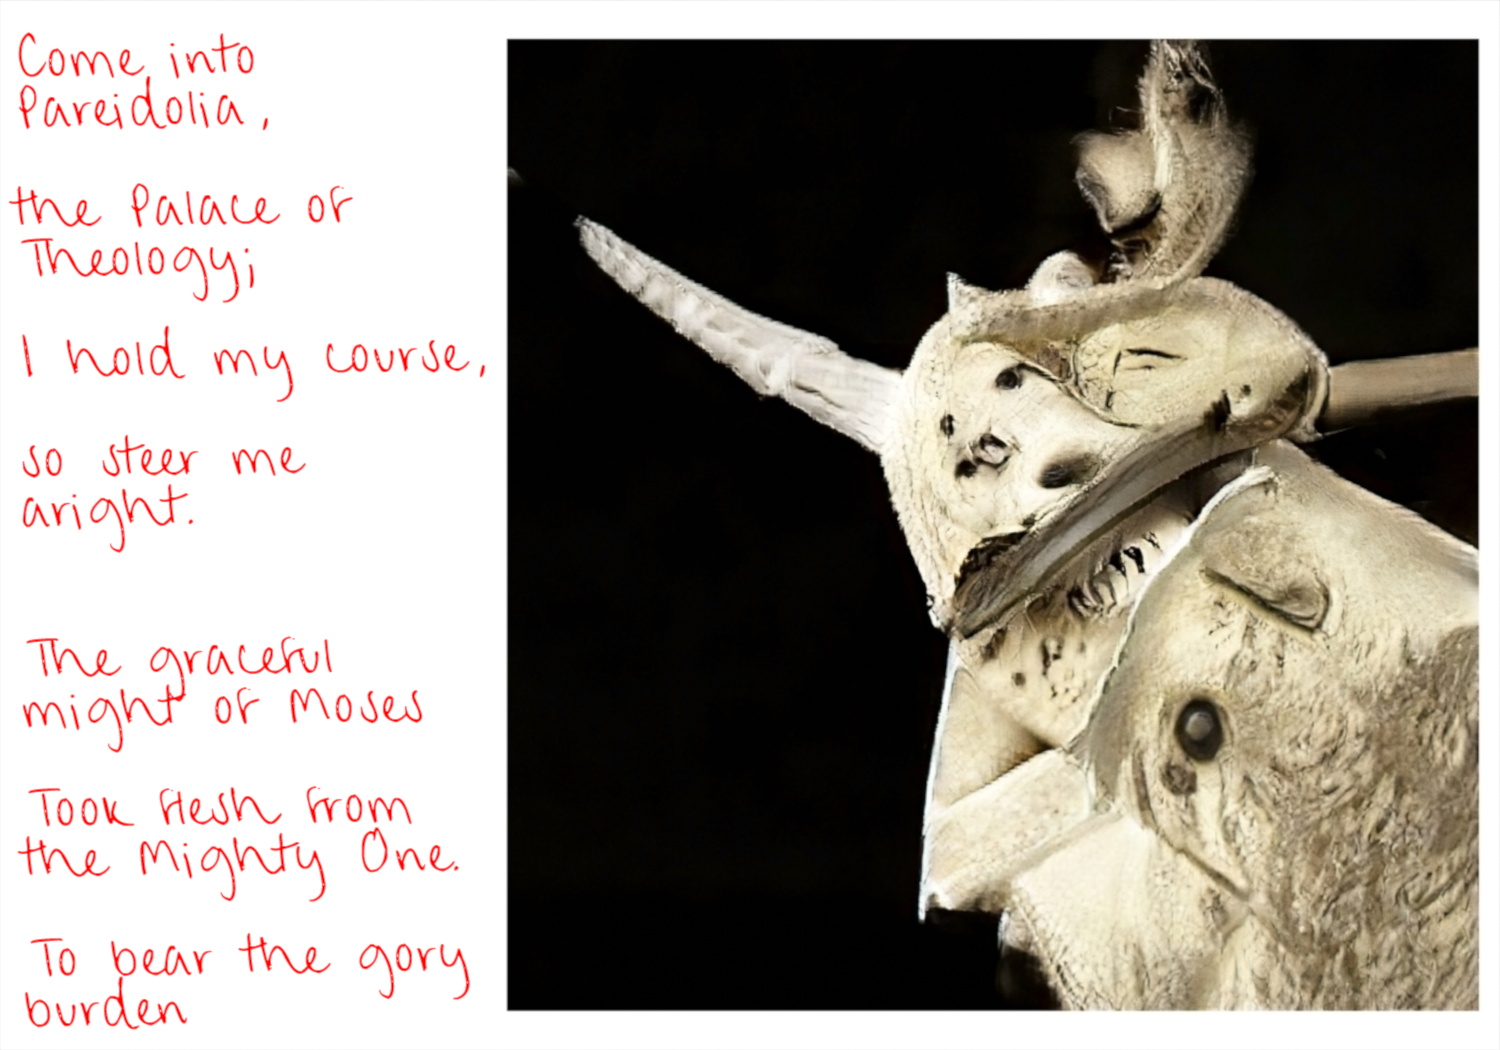 Come into
Pareidolia,
the Palace of
Theology;
I hold my course,
so steer me
aright.
The graceful
might of Moses
Took flesh from
the Mighty One.
To bear the gory
burden